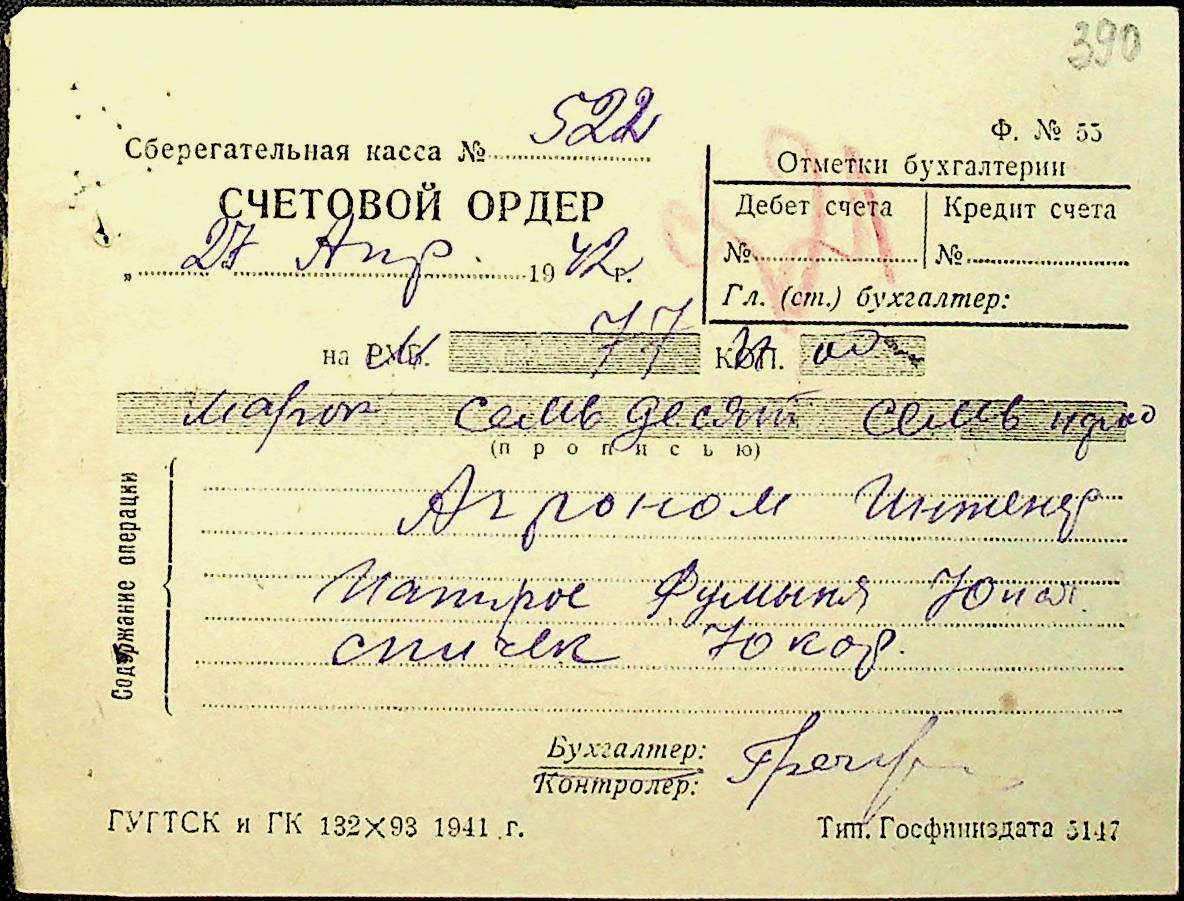 390
Ф. № 55
Сберегательная касса № 522
СЧЕТОВОЙ ОРДЕР
„ 27 Апр. 1942 г.
Отметки бухгалтерии
Дебет счета Кредит счета
№ №
Гл. (ст.) бухгалтер:
на РУБ. 77 КОП. 00
марок семьдесят семь
(прописью)
Содержание операции
Агроном Инженер
спичек 10 кор.
Бухгалтер:
Контролер:
ГУГТСК и ГК 132×93 1941 г.
Тип. Госфиниздата 5147